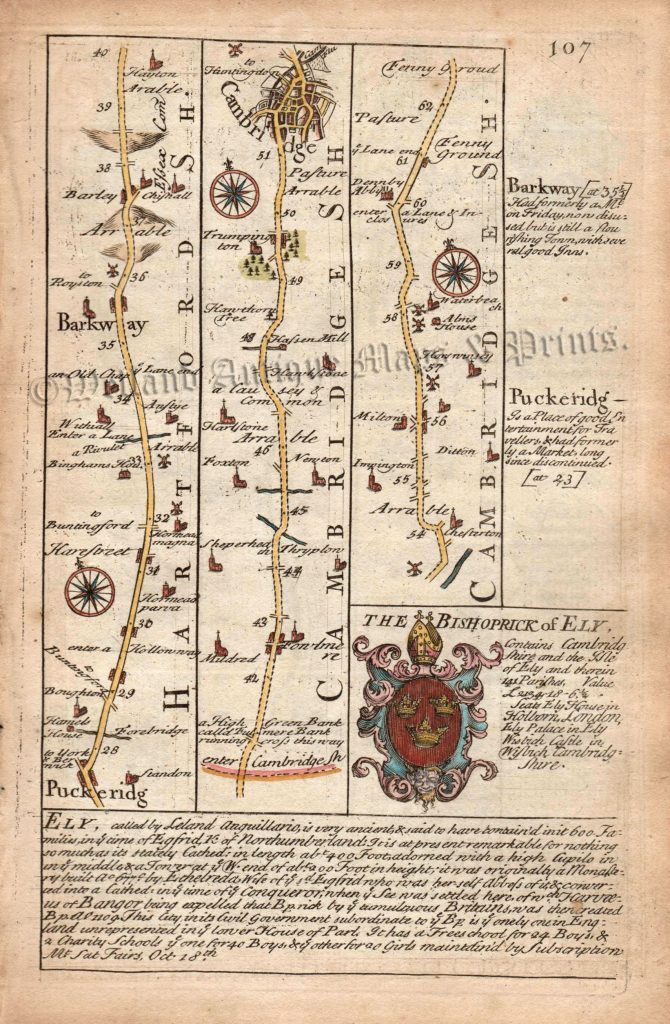 107
40
Hayton
Arable
39
Essex Com
38
Barley
Chishall
Arable
to
Royston
36
Barkway
35
an Old Chap
ye Lane end
34
Anstye
Enter a Lane
a Rivulet
Arable
Binghams Hou.
33
32
to
Buntingford
Hormead
magna
Harestreet
31
Hormead
parva
30
enter a
Hollow way
29
Boughton
Hamels
House
Forebridge
28
to York
& Ber
wick
Standon
Puckeridg
HARTFORDSH.
to
Huntingdon
Cambridge
51
Pasture
Arrable
50
Trumping
ton
49
Hawthorn
Tree
48
Hassen Hill
Hawkstone
a Causey &
Common
Harlstone
Arrable
46
Foxton
Newton
45
Sheperheath
Thrypton
44
43
Fowlmere
Mildred
42
a High
Green Bank
call'd
mere Bank
running
cross this way
enter Cambridge Sh
CAMBRIDGESH
Fenny Groud
62
Pasture
Fenny
Ground
ye Lane end
61
Dennby
Abby
60
enter a Lane & In
closures
59
Waterbeach
58
Alms
House
57
Milton
56
Ditton
Impington
55
Arrable
54
Chesterton
CAMBRIDGESH.
Barkway [at 35¼]
Had formerly a Mt.
on Friday, now disu-
sed but is still a flou
rishing Town, with seve
ral good Inns.
Puckeridg—
Is a Place of good En
tertainment for Tra
vellers, & had former
ly a Market, long
since discontinued.
[at 23]
©Welland Antique Maps & Prints.
THE BISHOPRICK of ELY,
Contains Cambridg
shire and the Isle
of Ely and therein
141 Parishes, Value
Seats Ely House in
Holborn, London,
Ely Palace in Ely
Wisbich Castle in
Wisbich, Cambridg-
shire.
ELY, called by Leland Anguillario, is very ancient, & said to have contain'd in it 600 Fa-
milies in ye time of Egfrid, K. of Northumberland: It is at present remarkable for nothing
so much as its stately Cathed: in length abt 400 Foot, adorned with a high Cupilo in
ye middle & a Tower at ye W. end of abt 200 Foot in height; it was originally a Monaste
ry built Ao 677 by Etheldreda Wife of ye sd Egfrid who was her self Abbess of it & conver-
ted into a Cathed: in ye time of ye Conqueror, when ye See was settled here, of wch Harvæ
us of Bangor being expelled that Bprick by ye tumultuous Britains was then created
Bp. Ao 1109. This City in its Civil Government subordinate to ye Bp. is ye onely one in Eng
land unrepresented in ye lower House of Parl. It has a Free school for 24 Boys, &
2 Charity Schools ye one for 40 Boys, & ye other for 20 Girls maintain'd by Subscription
Mt Sat Fairs, Oct 18th